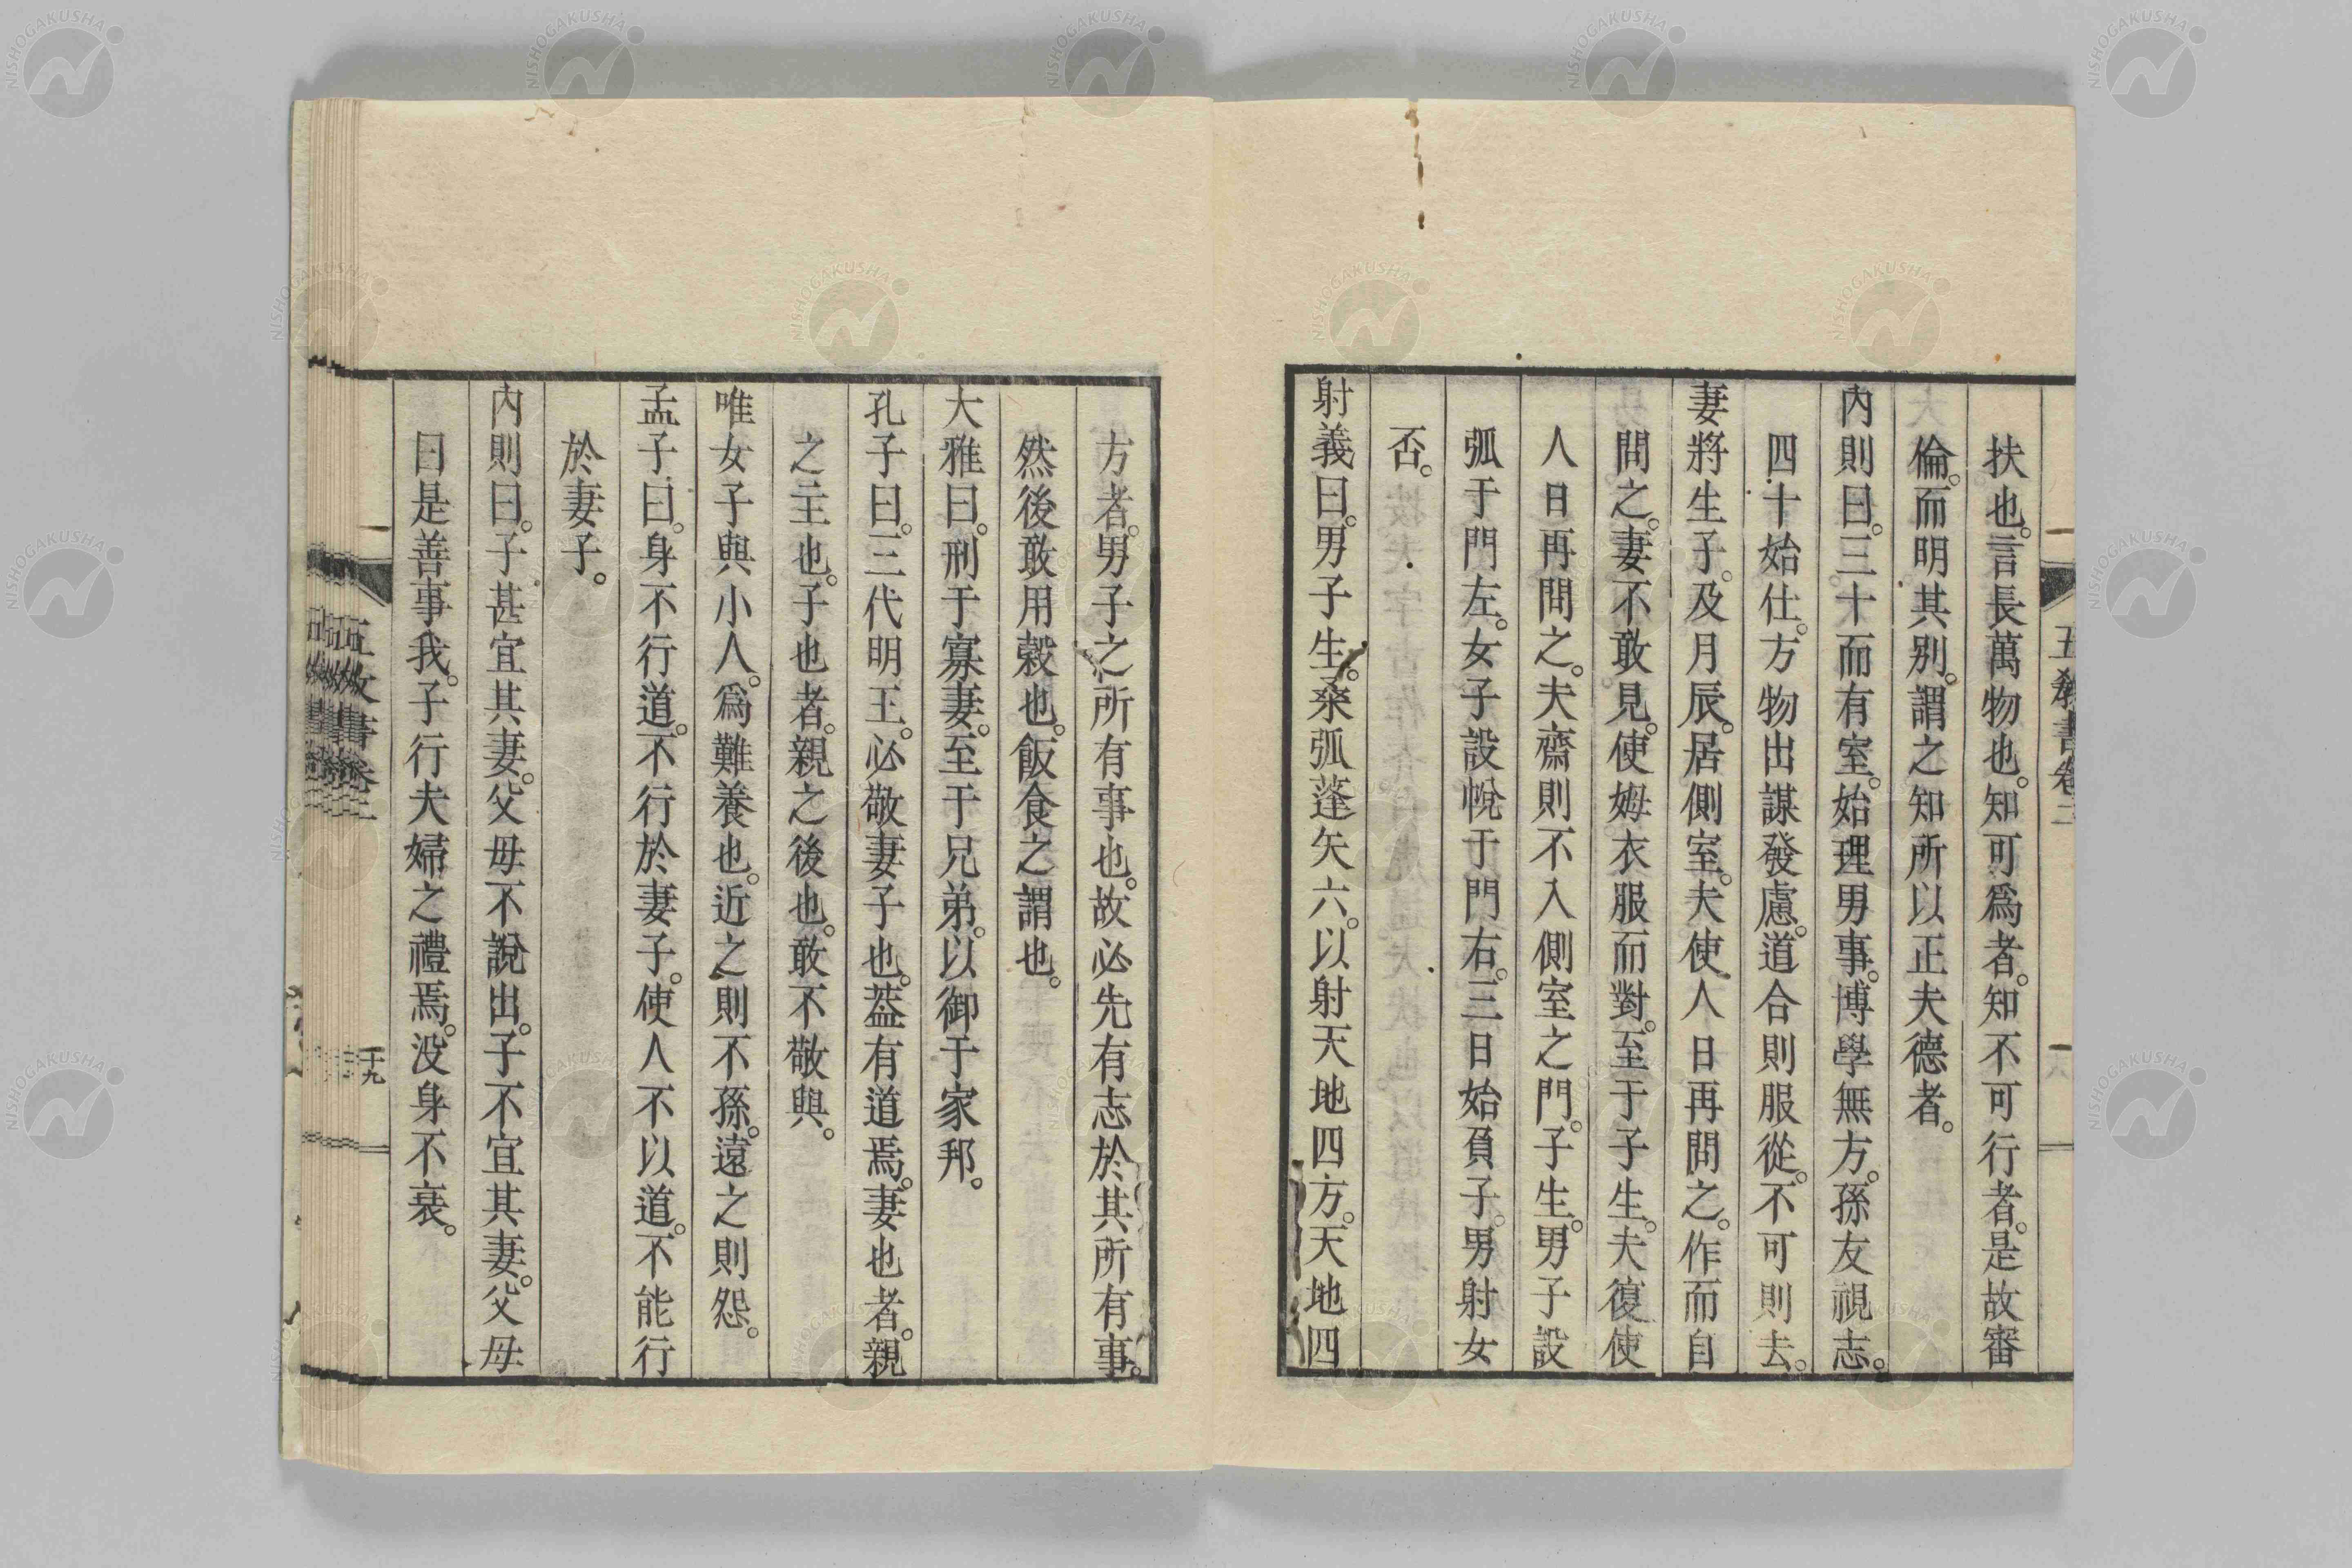 扶也。言長萬物也。知可爲者。知不可行者。是故審
倫。而明其別。謂之知所以正夫德者。
內則曰。三十而有室。始理男事。博學無方。孫友視志。
四十始仕。方物出謀發慮。道合則服從。不可則去。
妻將生子。及月辰。居側室。夫使人日再問之。作而自
問之。妻不敢見。使姆衣服而對。至于子生。夫復使
人日再問之。夫齋則不入側室之門。子生。男子設
弧于門左。女子設帨于門右。三日始負子。男射女
否。
射義曰。男子生。桑弧蓬矢六。以射天地四方。天地四
方者。男子之所有事也。故必先有志於其所有事。
然後敢用穀也。飯食之謂也。
大雅曰。刑于寡妻。至于兄弟。以御于家邦。
孔子曰。三代明王。必敬妻子也。蓋有道焉。妻也者。親
之主也。子也者。親之後也。敢不敬與。
唯女子與小人。爲難養也。近之則不孫。遠之則怨。
孟子曰。身不行道。不行於妻子。使人不以道。不能行
於妻子。
內則曰。子甚宜其妻。父母不說出。子不宜其妻。父母
曰是善事我。子行夫婦之禮焉。沒身不衰。
五敎書卷二
NISHOGAKUSHA